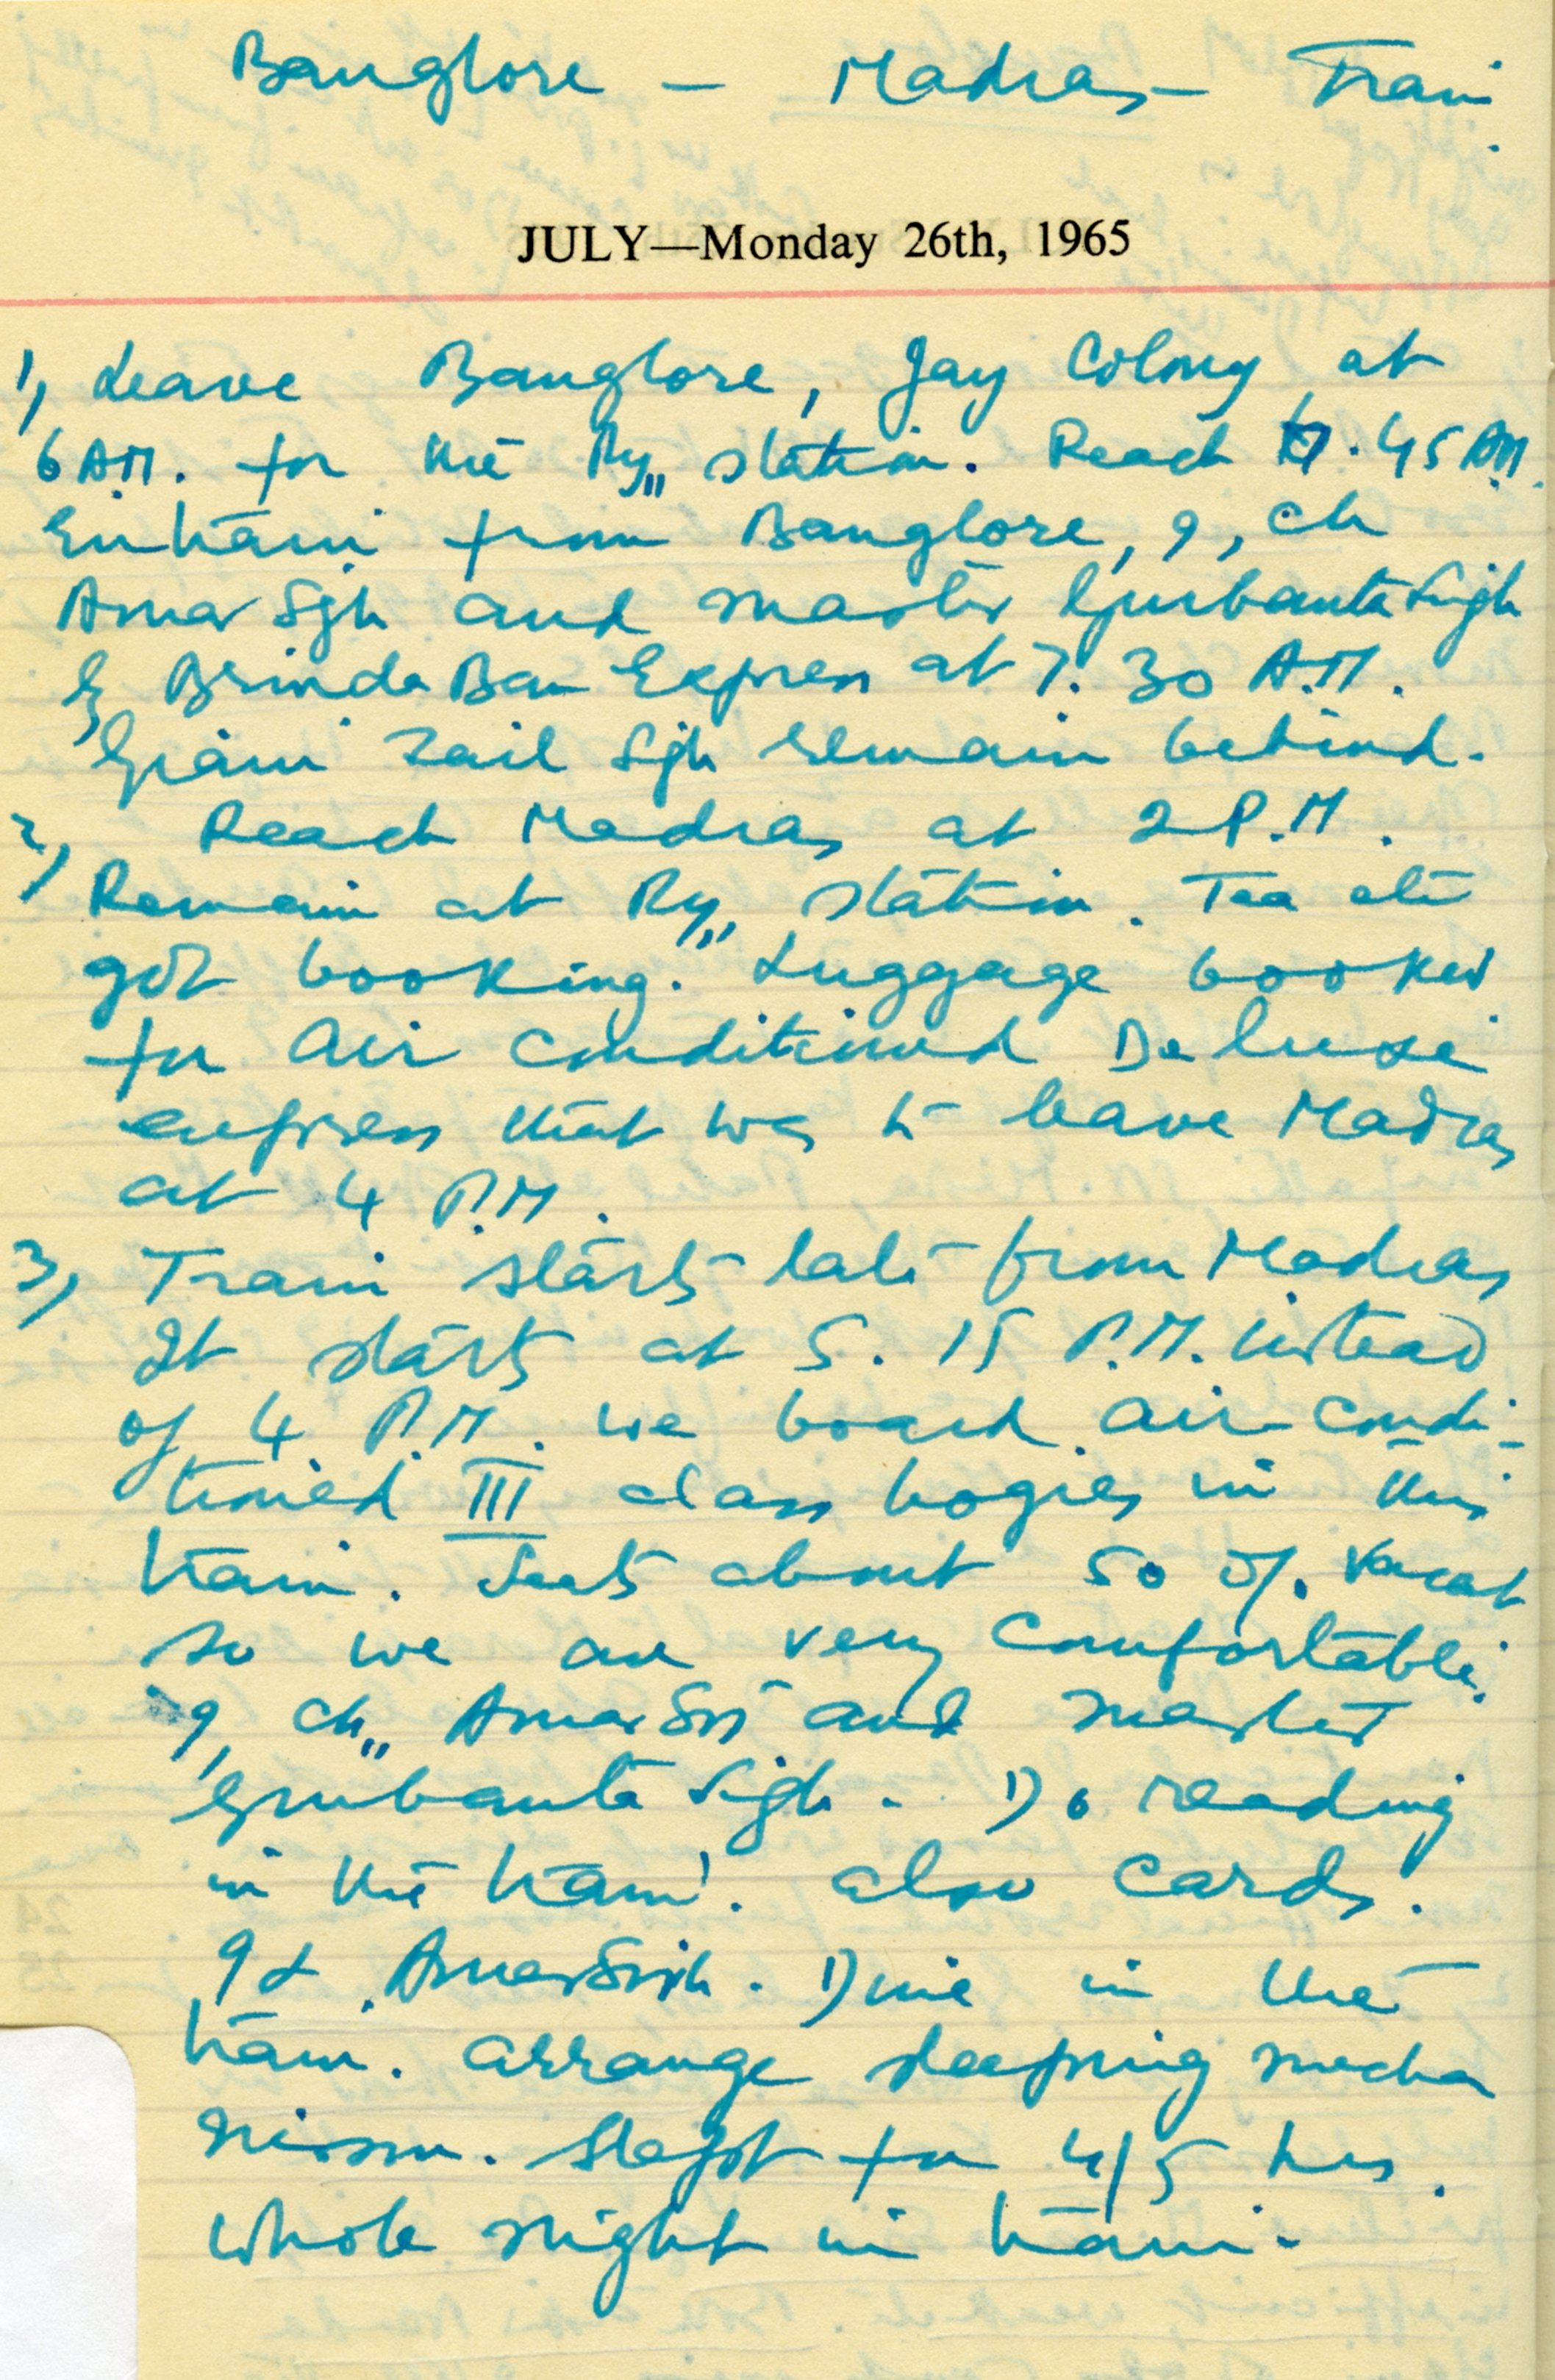 Banglore - Madras - Train.
JULY—Monday 26th, 1965
1, Leave Banglore, Jay Colony at
6 A.M. for the Ry,, station. Reach 7.45 AM.
Entrain from Banglore, I, Ch
Amar Sgh and master Gurbanta Singh
by Brinda Ban Express at 7.30 A.M.
Giani Zail Sgh remain behind.
2, Reach Madras at 2 P.M.
Remain at Ry,, station. Tea etc
got booking. Luggage booked
for air conditioned De luxe
express that was to leave Madras
at 4 P.M.
3, Train starts late from Madras
It starts at 5.15 P.M. instead
of 4 P.M. we board air condi-
tioned III class bogies in this
train. Seats about 50 % vacat
so we are very comfortable.
I, Ch,, Amar and master
Gurbanta Sigh. Do reading
in the train. also cards.
I & Amar Singh. Dine in the
train. arrange sleeping mecha
nism. Slept for 4/5 hrs.
whole night in train.